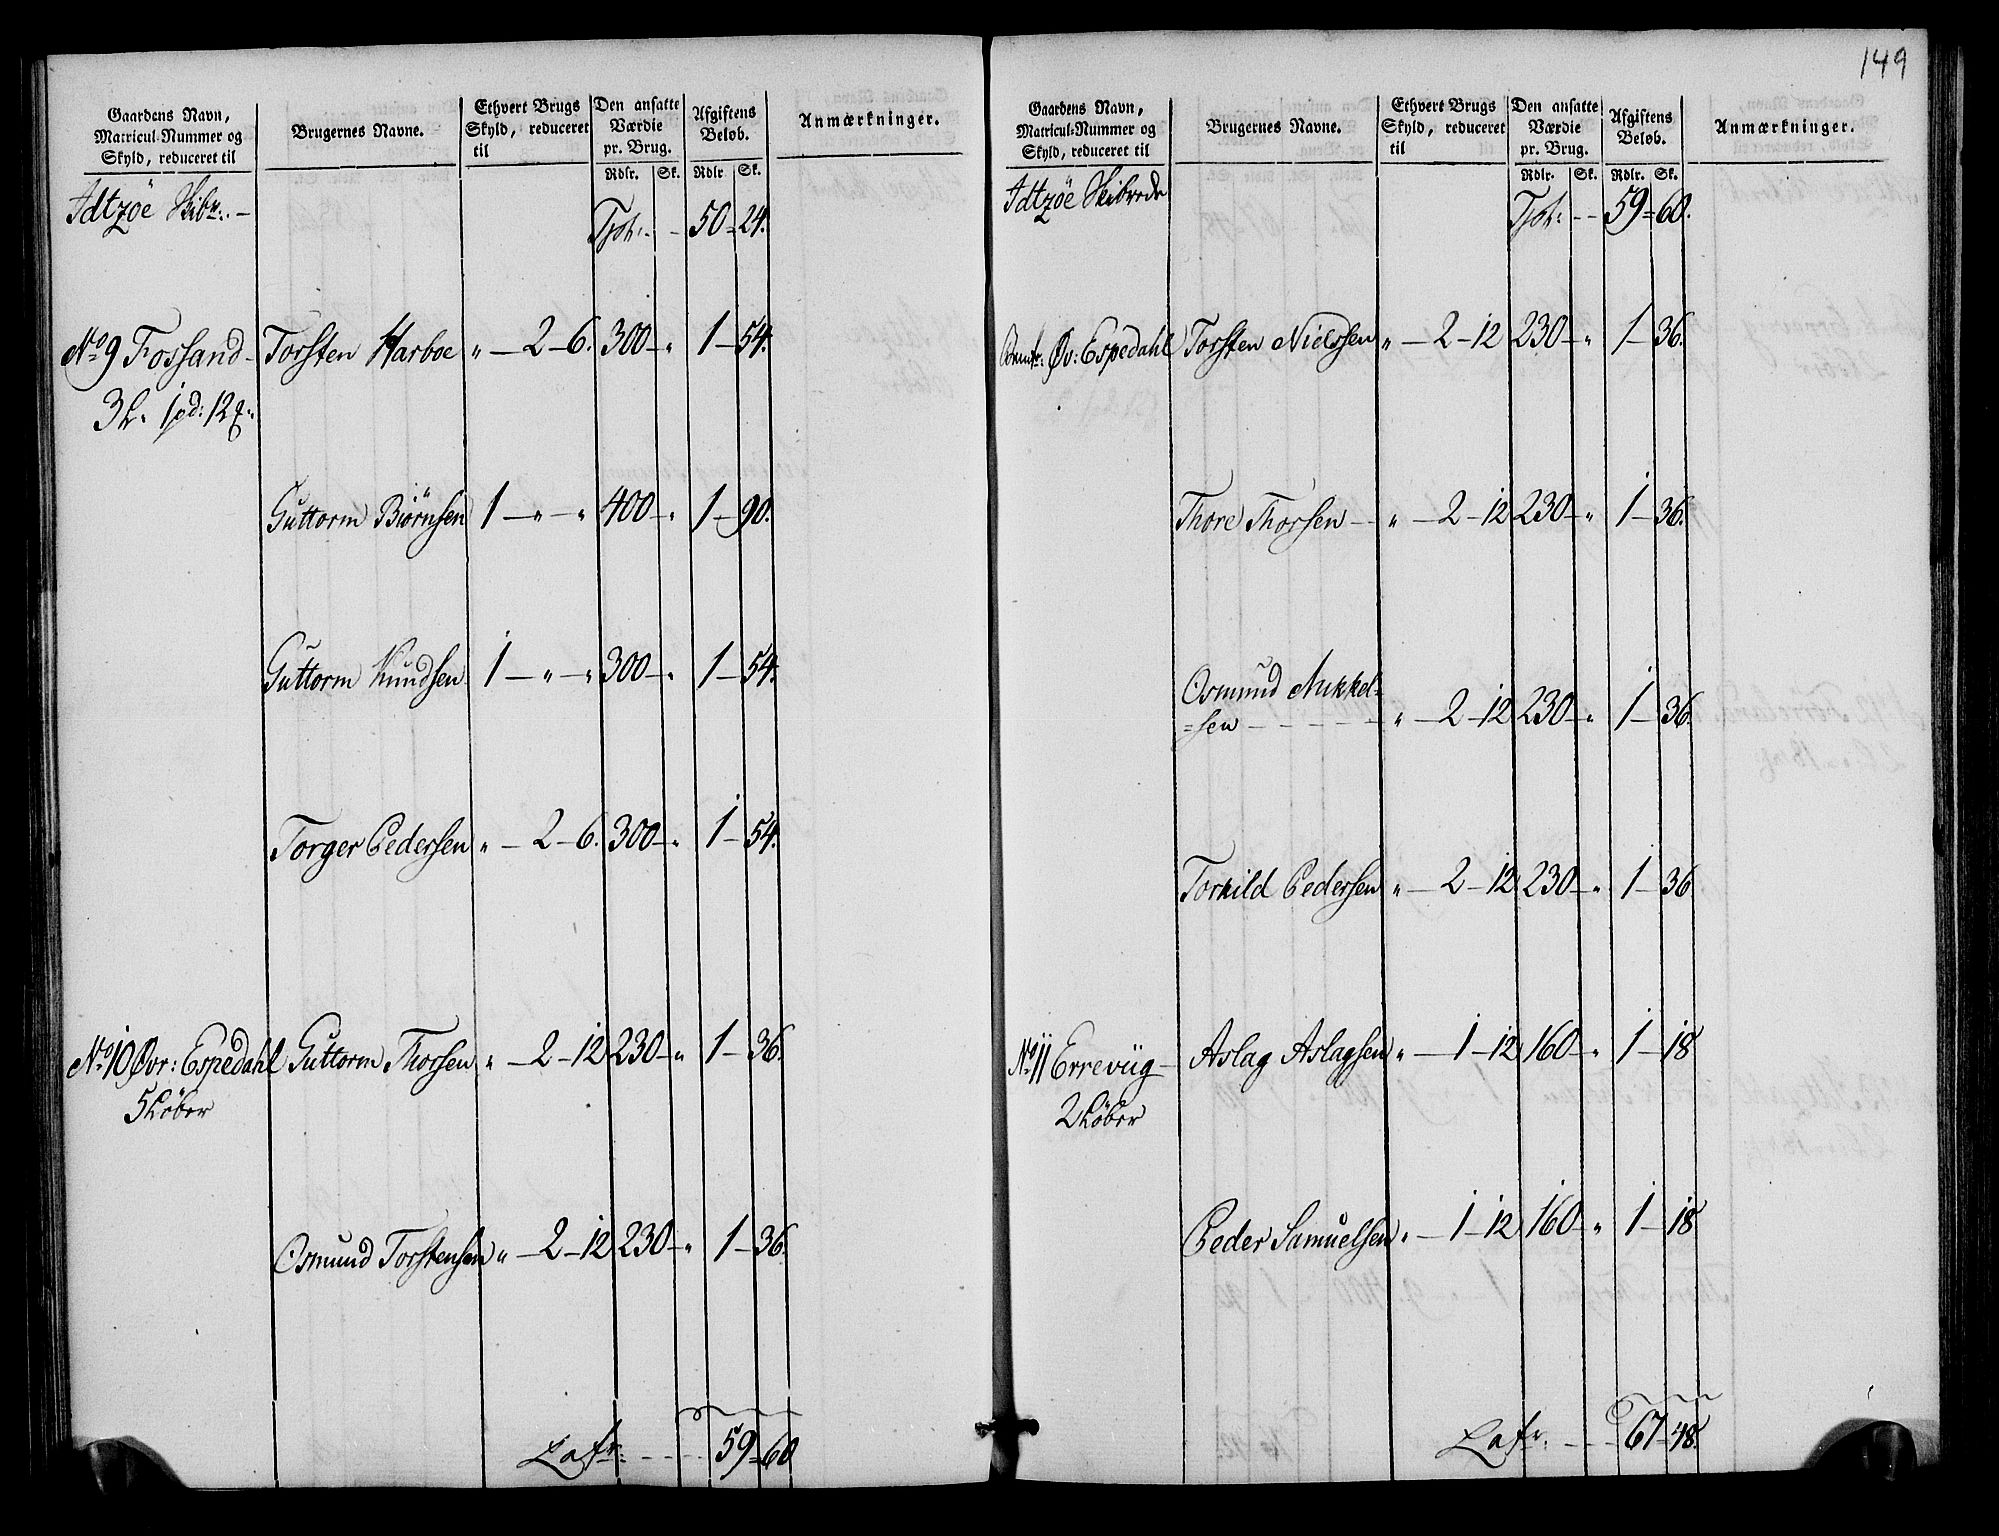 149
Gaardens Navn, Matricul-Nummer og Skyld, reduceret til | Brugernes Navne. | Ethvert Brugs Skyld, reduceret til | Den ansatte Værdie pr. Brug. Rdlr. Sk. | Afgiftens Beløb. Rdlr. Sk. | Anmærkninger.
Idtzöe Skibr: –
Tpt: – 50 = 24.
No 9 Fossand – Torsten Harboe „ – 2 – 6. 300 – „ 1 – 54.
3 L. 1 pd: 12
Guttorm Biörnsen 1 – „ – „ 400 – „ 1 – 90.
Guttorm Knudsen 1 – „ – „ 300 – „ 1 – 54.
Torger Pedersen „ – 2 – 6. 300 – „ 1 – 54.
No 10 Øvr: Espedahl Guttorm Thorsen „ – 2 – 12 230 – „ 1 – 36.
5 Löber
Osmund Torstensen „ – 2 – 12 230 – „ 1 – 36.
Lafr: – – – 59 = 60
Gaardens Navn, Matricul-Nummer og Skyld, reduceret til | Brugernes Navne. | Ethvert Brugs Skyld, reduceret til | Den ansatte Værdie pr. Brug. Rdlr. Sk. | Afgiftens Beløb. Rdlr. Sk. | Anmærkninger.
Idtzöe Skibrede
Tpt: – – 59 = 60.
Øv: Espedahl Torsten Nielssen „ – 2 – 12 230 – „ 1 – 36.
Thore Thorsen – – „ – 2 – 12 230 – „ 1 – 36.
Osmund Mikkel=
=sen – – – – – „ – 2 – 12 230 – „ 1 – 36.
Torkild Pedersen „ – 2 – 12 230 – „ 1 – 36
No 11 Errevüg – Aslag Aslagsen „ – 1 – 12 160 – „ 1 – 18
2 Löber
Peder Samuelsen „ – 1 – 12 160 – „ 1 – 18
Lafr. – – – 67 = 48.